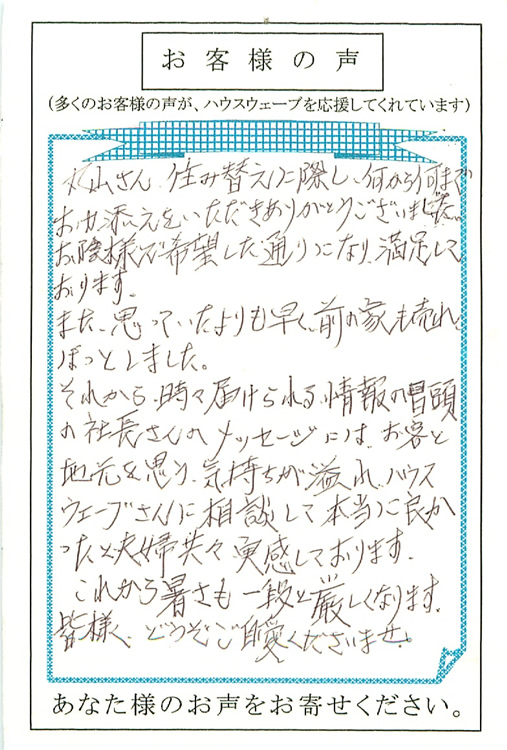 お客様の声
(多くのお客様の声が、ハウスウェーブを応援してくれています)
丸山さん、住み替えに際し、何から何まで
お力添えをいただきありがとうございました。
お陰様で希望した通りになり、満足して
おります。
また、思っていたよりも早く、前の家も売れ、
ほっとしました。
それから、時々届けられる情報の冒頭
の社長さんのメッセージには、お客と
地元を思う、気持ちが溢れ、ハウス
ウェーブさんに相談して本当に良か
ったと夫婦共々実感しております。
これから暑さも一段と厳しくなります。
皆様、どうぞご自愛くださいませ。
あなた様のお声をお寄せください。